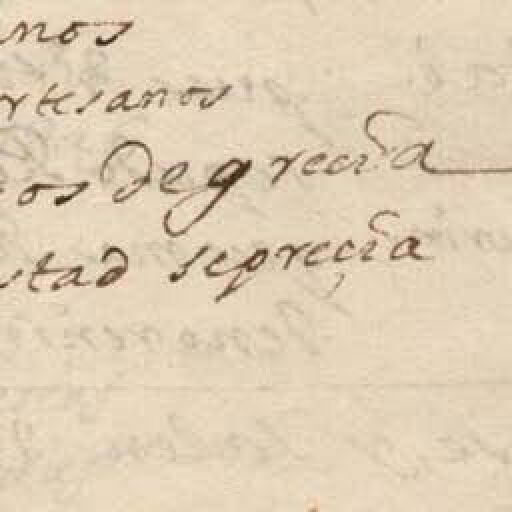 nos
rtesanos
os De grecia
stad seprecia